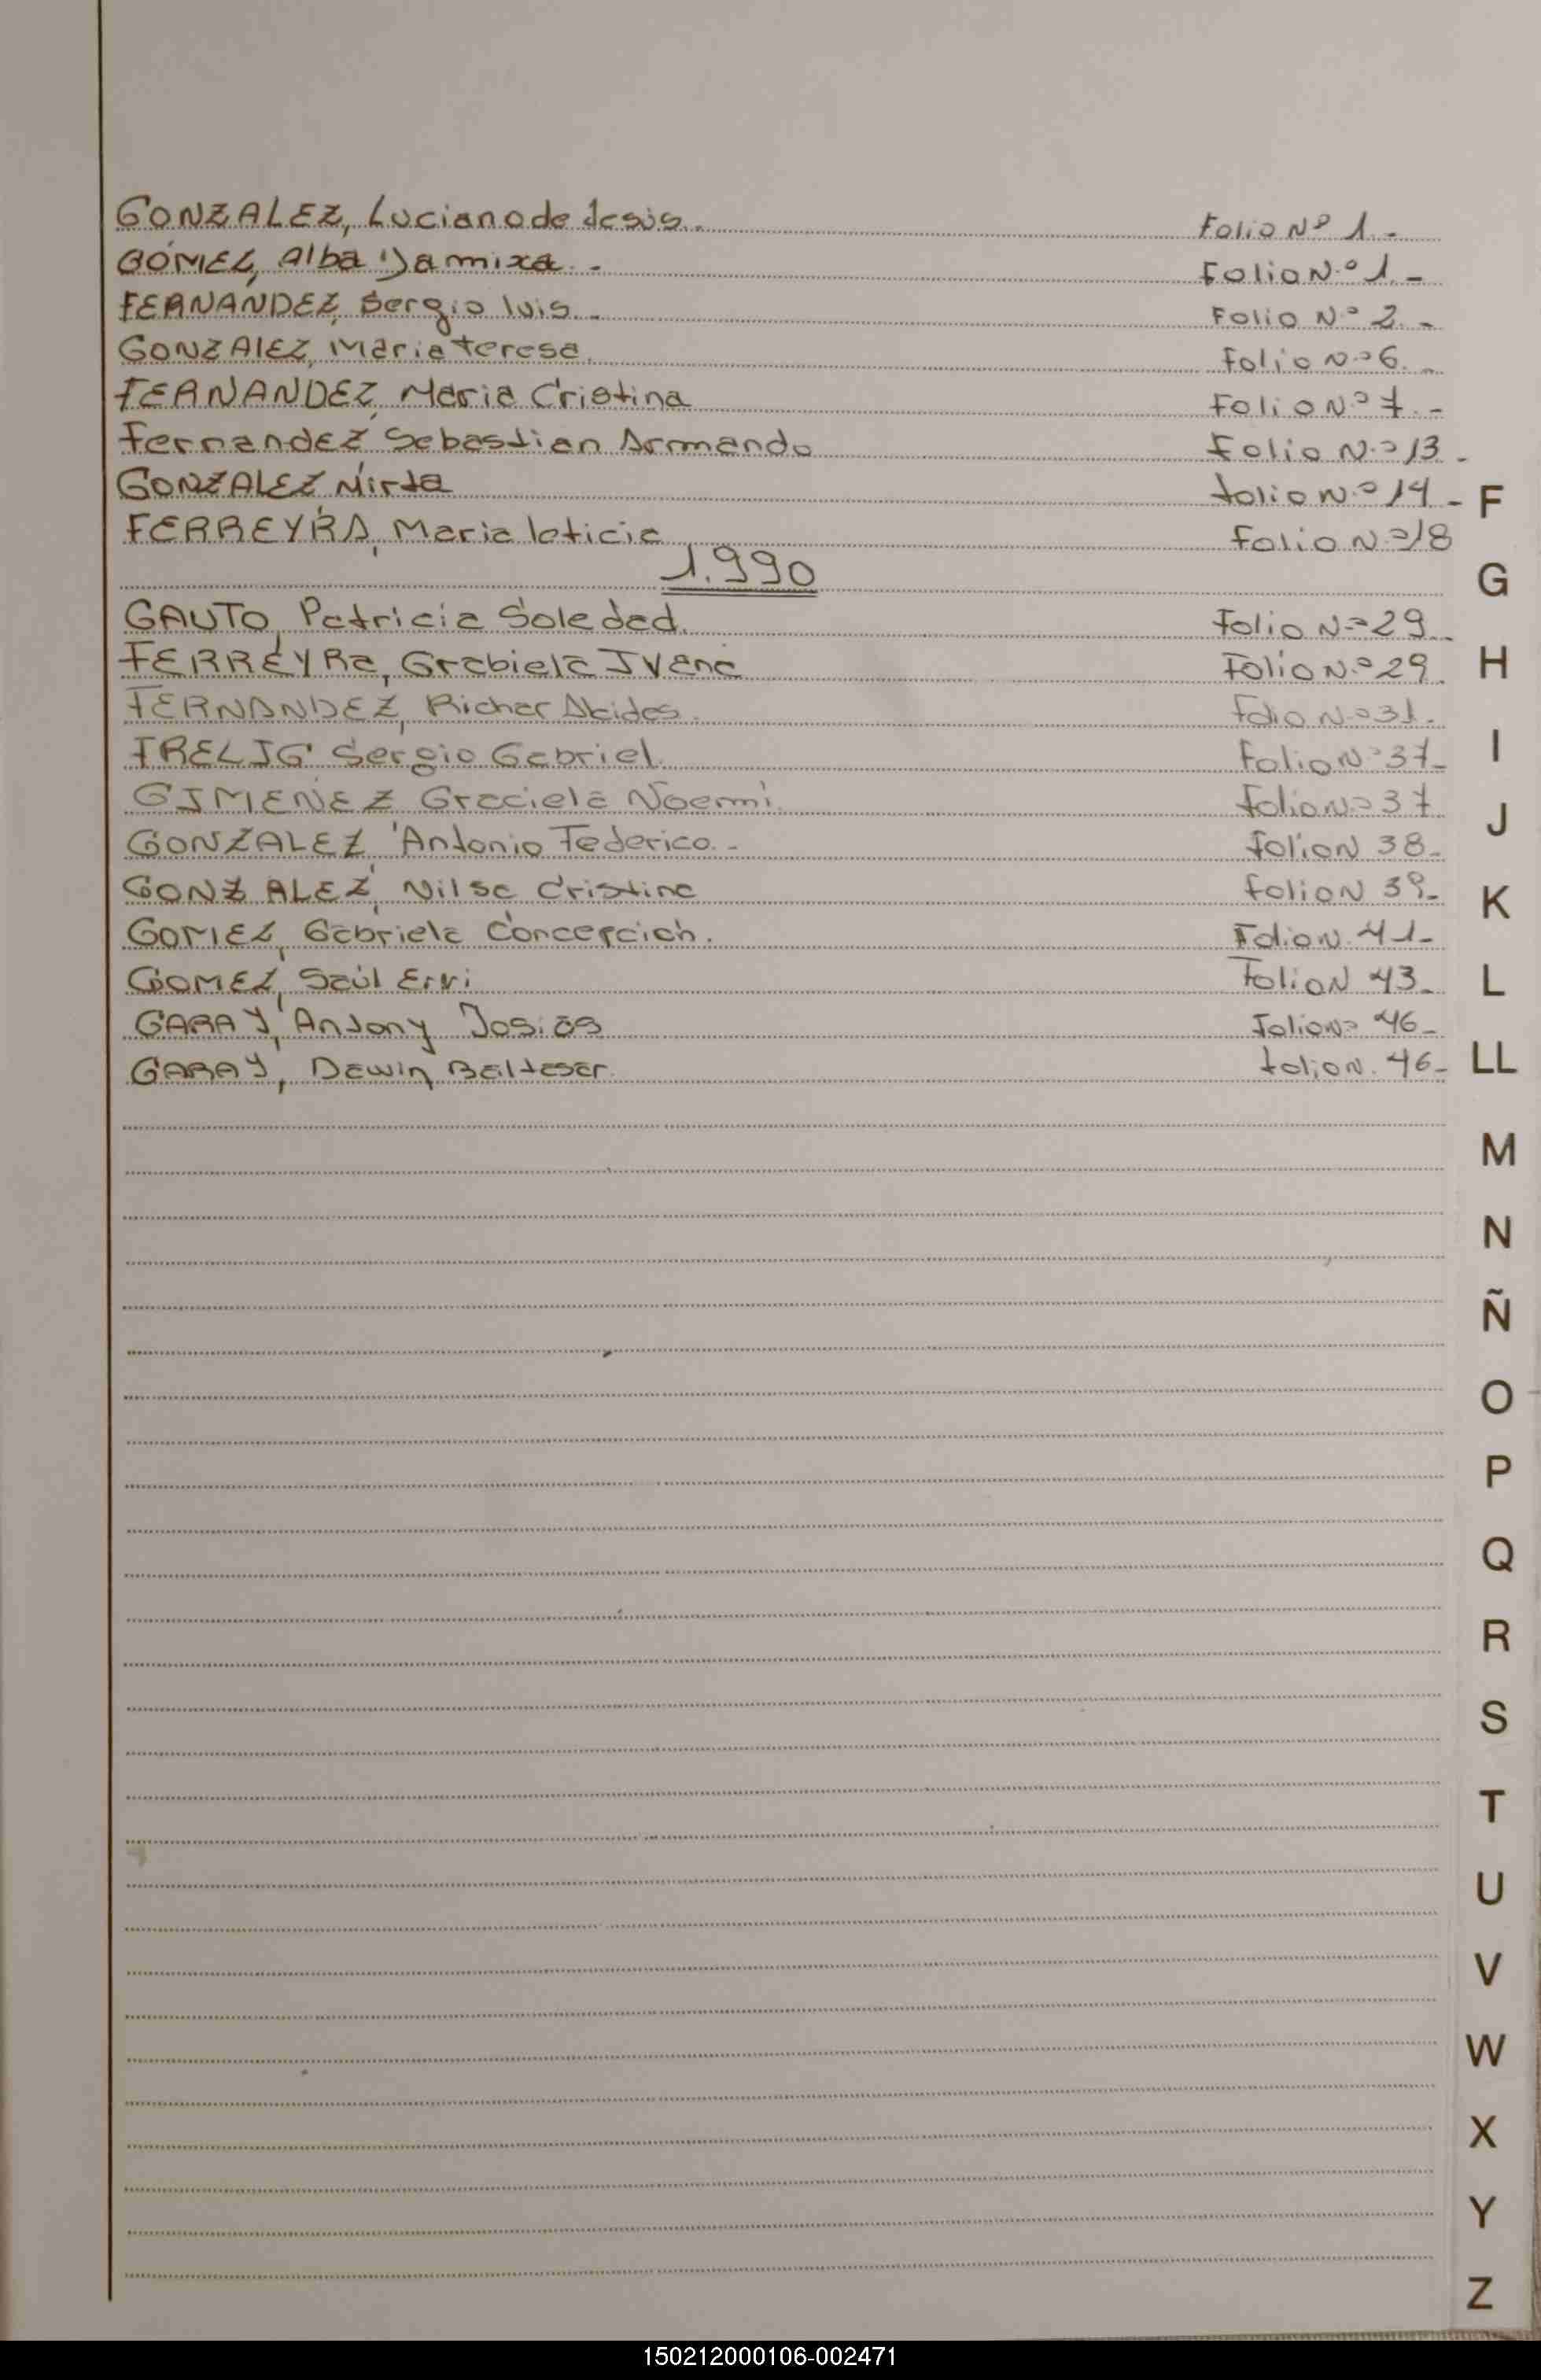 GONZALEZ, Luciano de Jesús. Folio Nº 1.-
GOMEZ, Alba Yamixa.- Folio N.º 1.-
FERNANDEZ, Sergio luis.- Folio Nº 2.-
GONZAlEZ, Maria teresa. Folio Nº 6.-
FERNANDEZ, Maria Cristina Folio Nº 7.-
FernandEZ Sebastian Armando Folio N.º 13.-
GONZALEZ Mirta folio N.º 14-
FERREYRA, Maria leticia Folio Nº 18
1.990
GAUTO, Patricia Soledad. Folio Nº 29.
FERREYRa, Grabiela IVana Folio Nº 29.
FERNANDEZ, Richar Alcides. Folio Nº 31.
FRELIG Sergio Gabriel. Folio Nº 37-
GIMENEZ Graciela Noemi. Folio Nº 37
GONZALEZ, Antonio Federico.- Folio N 38-
GONZALEZ, Nilsa Cristina Folio N 39-
GOMEZ, Gabriela Concepcion. Folio N. 41-
GOMEZ, Saúl Ervi Folio N 43-
GARAY, Antony Josias Folio Nº 46-
GARAY, Dewin Baltasar. folio N. 46-
F
G
H
I
J
K
L
LL
M
N
Ñ
O
P
Q
R
S
T
U
V
W
X
Y
Z
150212000106-002471